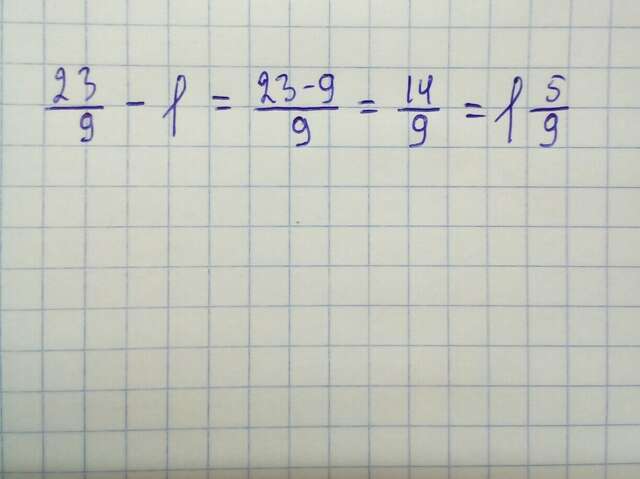 23/9 - 1 = 23-9/9 = 14/9 = 1 5/9